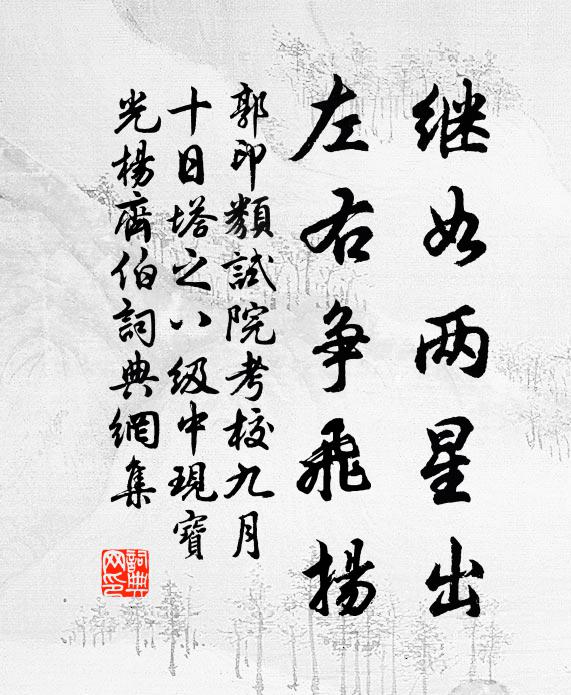 继如两星出
左右争飛揚
郭印類試院考校九月
十日塔之八级中現寶
光楊齊伯詞典網集
詞典网印